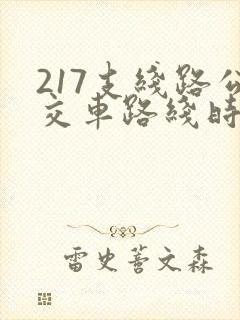 217支綫路公
交車路綫時
雷史蓍文森